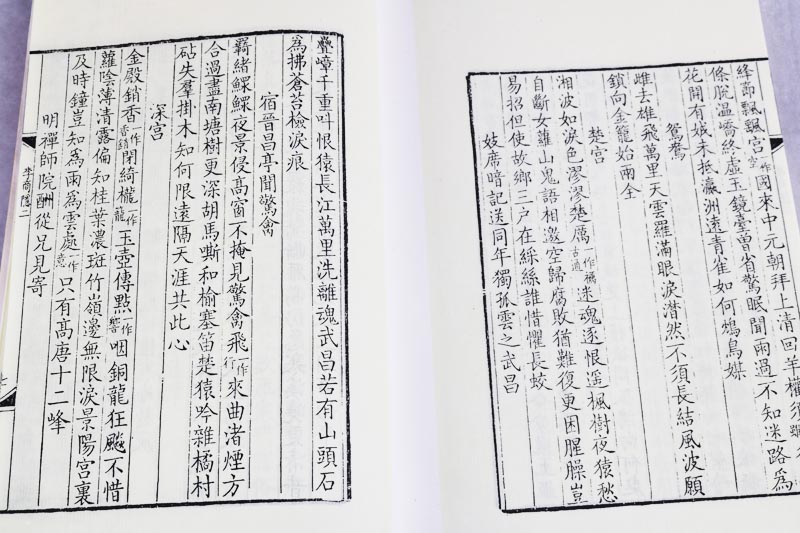 絳節飄飄宮一作空國來中元朝拜上清回羊權須
條脫温嶠終虛玉鏡臺曾省驚眠聞雨過不知迷路為
花開有娀未抵瀛洲遠青雀如何鴆鳥媒
鴛鴦
雌去雄飛萬里天雲羅滿眼淚潸然不須長結風波願
鎖向金籠始兩全
楚宮
湘波如淚色漻漻楚厲一作癘古通迷魂逐恨遥楓樹夜猿愁
自斷女蘿山鬼語相邀空歸腐敗猶難復更困腥臊豈
易招但使故鄉三户在綵絲誰惜懼長蛟
妓席暗記送同年獨孤雲之武昌
疊嶂千重叫恨猿長江萬里洗離魂武昌若有山頭石
為拂蒼苔檢淚痕
宿晉昌亭聞驚禽
羇緒鰥鰥夜景侵髙窗不掩見驚禽飛一作行來曲渚煙方
合過盡南塘樹更深胡馬嘶和榆塞笛楚猿吟雜橘村
砧失羣掛木知何限遠隔天涯共此心
深宮
金殿銷香一作香銷閉綺櫳一作籠玉壺傳㸃一作響咽銅龍狂飈不惜
蘿陰薄清露偏知桂葉濃斑竹嶺邊無限淚景陽宮裏
及時鐘豈知為雨為雲處一作意只有髙唐十二峰
明禪師院酬從兄見寄
李商隱二